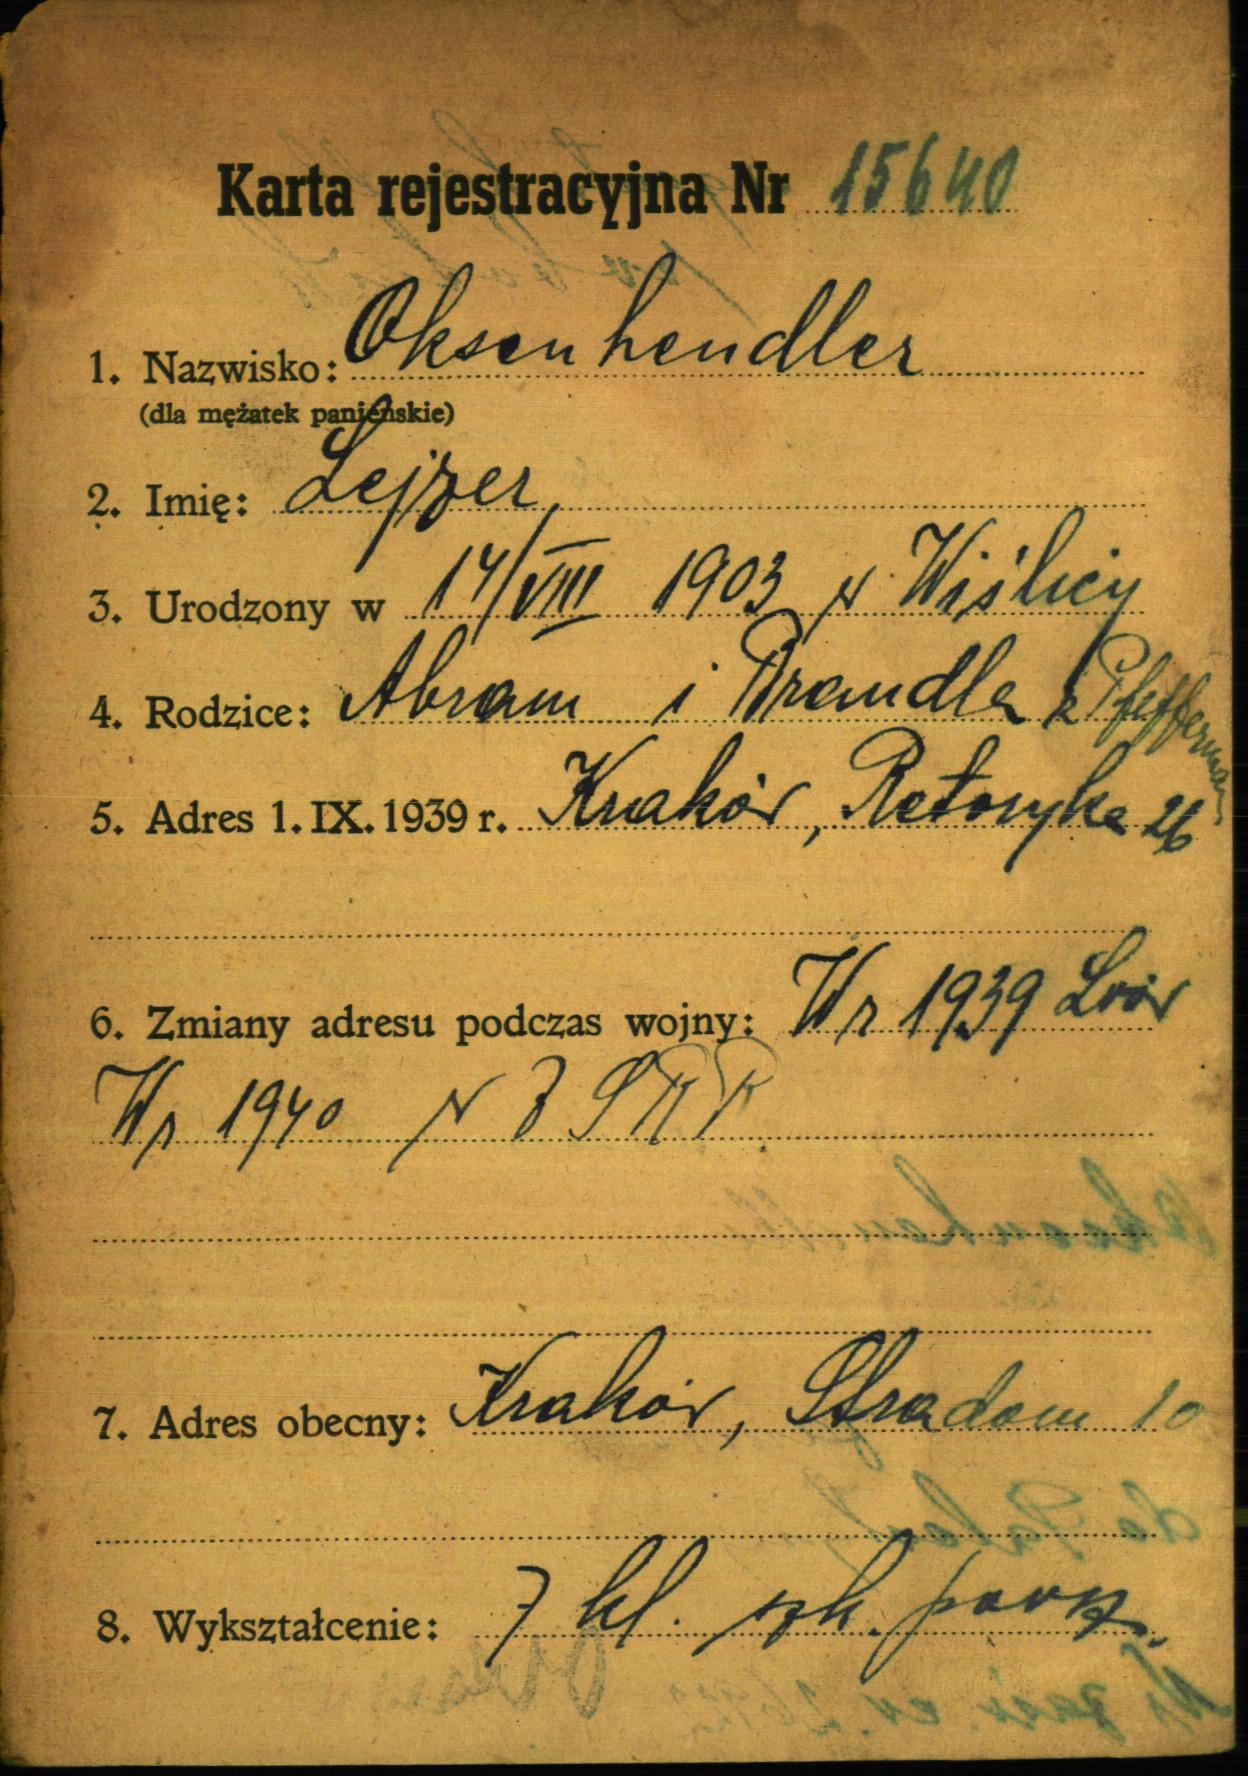 Karta rejestracyjna Nr 15640
1. Nazwisko: Oksenhendler
(dla mężatek panieńskie)
2. Imię: Lejzer
3. Urodzony w 14/VIII 1903 w Wiślicy
4. Rodzice: Abram i Brandla z Pfefferman
5. Adres 1. IX. 1939 r. Kraków, Retoryka 26
6. Zmiany adresu podczas wojny: W r 1939 Lwów
W r 1940 w ZSRR
7. Adres obecny: Kraków, Stradom 10
8. Wykształcenie: 7 kl. szk. powsz.